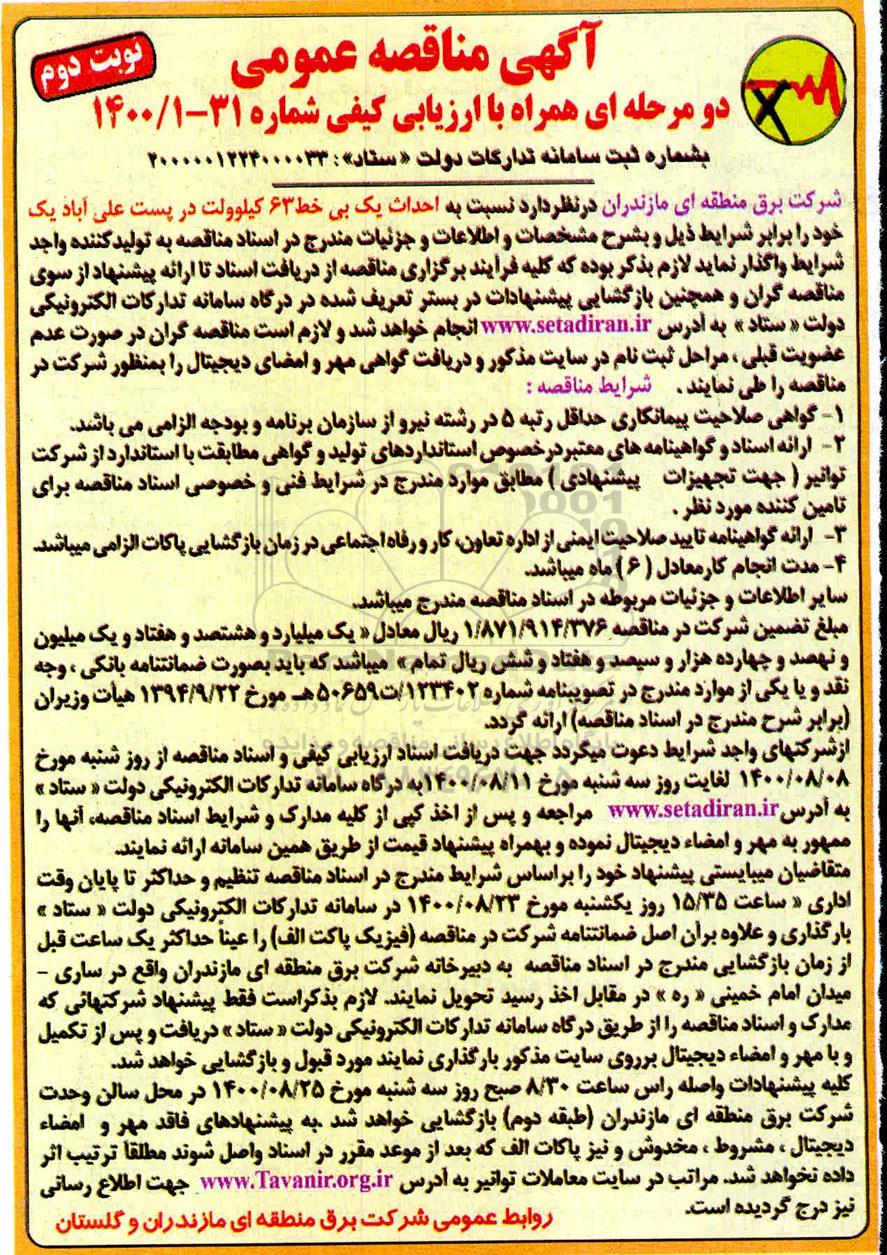 نوبت دوم
آگهی مناقصه عمومی
دو مرحله ای همراه با ارزیابی کیفی شماره ۳۱-۱۴۰۰/۱
بشماره ثبت سامانه تدارکات دولت « ستاد» : ۲۰۰۰۰۰۱۲۲۴۰۰۰۰۳۳
شرکت برق منطقه ای مازندران درنظردارد نسبت به احداث یک بی خط۶۳ کیلوولت در پست علی آباد یک
خود را برابر شرایط ذیل و بشرح مشخصات و اطلاعات و جزئیات مندرج در اسناد مناقصه به تولیدکننده واجد
شرایط واگذار نماید لازم بذکر بوده که کلیه فرآیند برگزاری مناقصه از دریافت اسناد تا ارائه پیشنهاد از سوی
مناقصه گران و همچنین بازگشایی پیشنهادات در بستر تعریف شده در درگاه سامانه تدارکات الکترونیکی
دولت « ستاد » به آدرس www.setadiran.ir انجام خواهد شد و لازم است مناقصه گران در صورت عدم
عضویت قبلی ، مراحل ثبت نام در سایت مذکور و دریافت گواهی مهر و امضای دیجیتال را بمنظور شرکت در
مناقصه را طی نمایند . شرایط مناقصه :
۱- گواهی صلاحیت پیمانکاری حداقل رتبه ۵ در رشته نیرو از سازمان برنامه و بودجه الزامی می باشد.
۲- ارائه اسناد و گواهینامه های معتبر درخصوص استانداردهای تولید و گواهی مطابقت با استاندارد از شرکت
توانیر ( جهت تجهیزات پیشنهادی ) مطابق موارد مندرج در شرایط فنی و خصوصی اسناد مناقصه برای
تامین کننده مورد نظر .
۳- ارائه گواهینامه تایید صلاحیت ایمنی از اداره تعاون، کار و رفاه اجتماعی در زمان بازگشایی پاکات الزامی میباشد.
۴- مدت انجام کارمعادل ( ۶ ) ماه میباشد.
سایر اطلاعات و جزئیات مربوطه در اسناد مناقصه مندرج میباشد.
مبلغ تضمین شرکت در مناقصه ۱/۸۷۱/۹۱۴/۳۷۶ ریال معادل « یک میلیارد و هشتصد و هفتاد و یک میلیون
و نهصد و چهارده هزار و سیصد و هفتاد و شش ریال تمام » میباشد که باید بصورت ضمانتنامه بانکی ، وجه
نقد و یا یکی از موارد مندرج در تصویبنامه شماره ۱۲۳۴۰۲/ت۵۰۶۵۹هـ مورخ ۱۳۹۴/۹/۲۲ هیأت وزیران
(برابر شرح مندرج در اسناد مناقصه) ارائه گردد.
ازشرکتهای واجد شرایط دعوت میگردد جهت دریافت اسناد ارزیابی کیفی و اسناد مناقصه از روز شنبه مورخ
۱۴۰۰/۰۸/۰۸ لغایت روز سه شنبه مورخ ۱۴۰۰/۰۸/۱۱به درگاه سامانه تدارکات الکترونیکی دولت « ستاد »
به آدرس www.setadiran.ir مراجعه و پس از اخذ کپی از کلیه مدارک و شرایط اسناد مناقصه، آنها را
ممهور به مهر و امضاء دیجیتال نموده و بهمراه پیشنهاد قیمت از طریق همین سامانه ارائه نمایند.
متقاضیان میبایستی پیشنهاد خود را براساس شرایط مندرج در اسناد مناقصه تنظیم و حداکثر تا پایان وقت
اداری « ساعت ۱۵/۳۵ روز یکشنبه مورخ ۱۴۰۰/۰۸/۲۳ در سامانه تدارکات الکترونیکی دولت « ستاد »
بارگذاری و علاوه برآن اصل ضمانتنامه شرکت در مناقصه (فیزیک پاکت الف) را عیناً حداکثر یک ساعت قبل
از زمان بازگشایی مندرج در اسناد مناقصه به دبیرخانه شرکت برق منطقه ای مازندران واقع در ساری –
میدان امام خمینی « ره » در مقابل اخذ رسید تحویل نمایند. لازم بذکراست فقط پیشنهاد شرکتهائی که
مدارک و اسناد مناقصه را از طریق درگاه سامانه تدارکات الکترونیکی دولت « ستاد » دریافت و پس از تکمیل
و با مهر و امضاء دیجیتال برروی سایت مذکور بارگذاری نمایند مورد قبول و بازگشایی خواهد شد.
کلیه پیشنهادات واصله راس ساعت ۸/۳۰ صبح روز سه شنبه مورخ ۱۴۰۰/۰۸/۲۵ در محل سالن وحدت
شرکت برق منطقه ای مازندران (طبقه دوم) بازگشایی خواهد شد .به پیشنهادهای فاقد مهر و امضاء
دیجیتال ، مشروط ، مخدوش و نیز پاکات الف که بعد از موعد مقرر در اسناد واصل شوند مطلقاً ترتیب اثر
داده نخواهد شد. مراتب در سایت معاملات توانیر به آدرس www.Tavanir.org.ir جهت اطلاع رسانی
نیز درج گردیده است.
روابط عمومی شرکت برق منطقه ای مازندران و گلستان